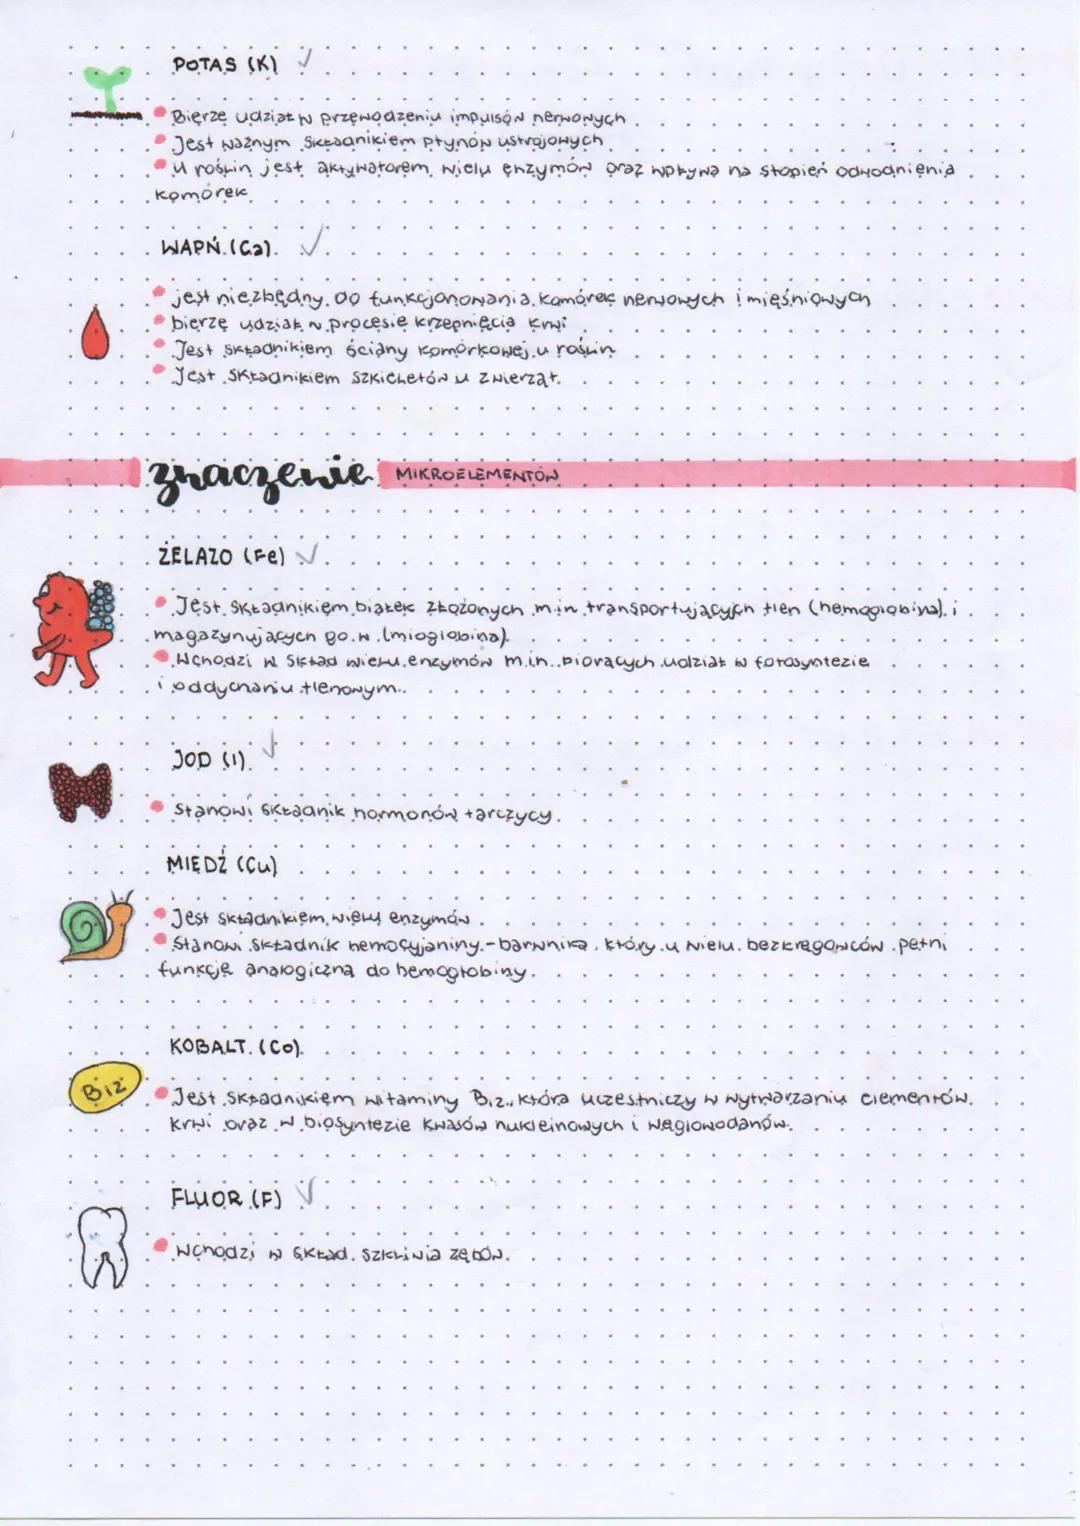 POTAS (K) ✓
• Bierze udział w przewodzeniu impulsów nerwowych.
• Jest ważnym składnikiem płynów ustrojowych.
• U roślin jest aktywatorem wielu enzymów oraz wpływa na stopień odwodnienia
komórek.
WAPŃ (Ca). ✓
• jest niezbędny do funkcjonowania komórek nerwowych i mięśniowych
• bierze udział w procesie krzepnięcia krwi
• Jest składnikiem ściany komórkowej u roślin
• Jest składnikiem szkieletów u zwierząt.
znaczenie MIKROELEMENTÓW
ŻELAZO (Fe) ✓
• Jest składnikiem białek złożonych m.in. transportujących tlen (hemoglobina) i
magazynujących go w (mioglobina).
• Wchodzi w skład wielu enzymów m.in. biorących udział w fotosyntezie
i oddychaniu tlenowym.
JOD (I). ✓
• Stanowi składnik hormonów tarczycy.
MIEDŹ (Cu)
• Jest składnikiem wielu enzymów.
• Stanowi składnik hemocyjaniny - barwnika, który u wielu bezkręgowców pełni
funkcję analogiczną do hemoglobiny.
KOBALT (Co).
B12
• Jest składnikiem witaminy B12, która uczestniczy w wytwarzaniu elementów
krwi oraz w biosyntezie kwasów nukleinowych i węglowodanów.
FLUOR (F) ✓
• Wchodzi w skład szkliwia zębów.